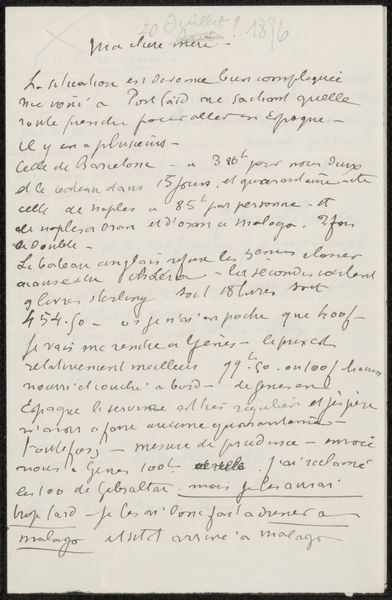 20 Juillet ? 1896
Ma chère mère -
La situation est devenue bien compliquée
me voici à Port Saïd ne sachant quelle
route prendre pour aller en Espagne -
il y en a plusieurs -
Celle de Barcelone - à 386 f pour nous deux
et le bateau dans 15 jours. et quarantaine -
celle de Naples à 85 f par personne - et
de naples à oran et d'oran à malaga. 2 fois
le double -
Le bateau anglais refuse les 3emes classes
à cause du choléra - les secondes coutent
9 livres sterling soit 18 livres soit
454.50 - or je n'ai en poche que 400 f -
je vais me rendre à Gênes - le prix est
relativement meilleur 99 f.50. ou 100 f
nourri et couché à bord - de Genes en
Espagne le service est très régulier et j'espère
n'avoir à faire aucune quarantaine -
Toutefois - mesure de prudence - envoie
nous à Gênes 100 f. J'ai réclamé
les 100 de Gibraltar. mais je les aurai
trop tard - je les ai donc fait adresser à
malaga et sitot arrivé à malaga